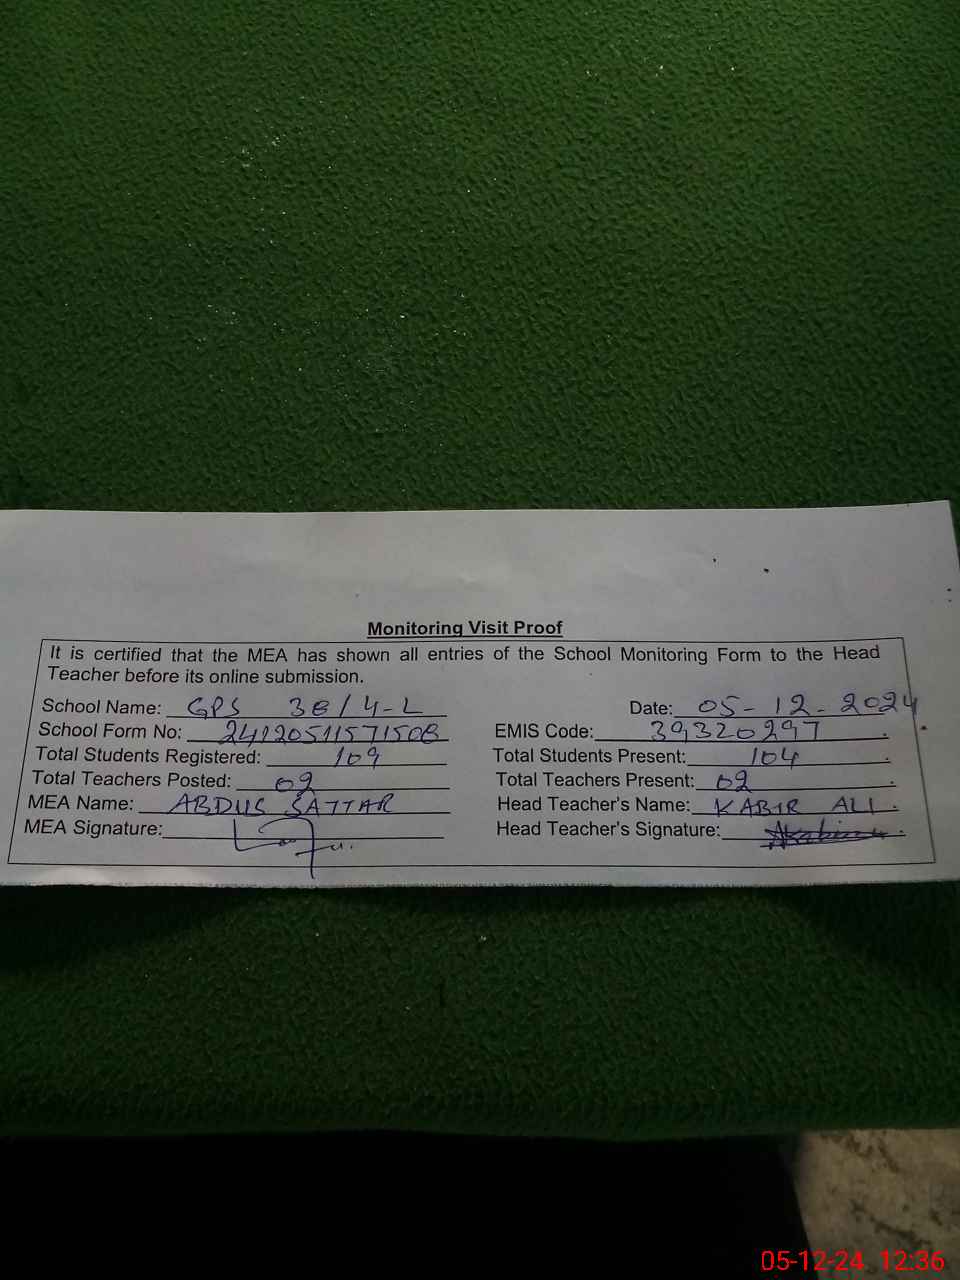 Monitoring Visit Proof
It is certified that the MEA has shown all entries of the School Monitoring Form to the Head
Teacher before its online submission.
School Name: GPS 38/4-L Date: 05-12-2024
School Form No: 24120511571508 EMIS Code: 39320297
Total Students Registered: 109 Total Students Present: 104
Total Teachers Posted: 02 Total Teachers Present: 02
MEA Name: ABDUS SATTAR Head Teacher's Name: KABIR ALI
MEA Signature: Head Teacher's Signature:
05-12-24 12:36